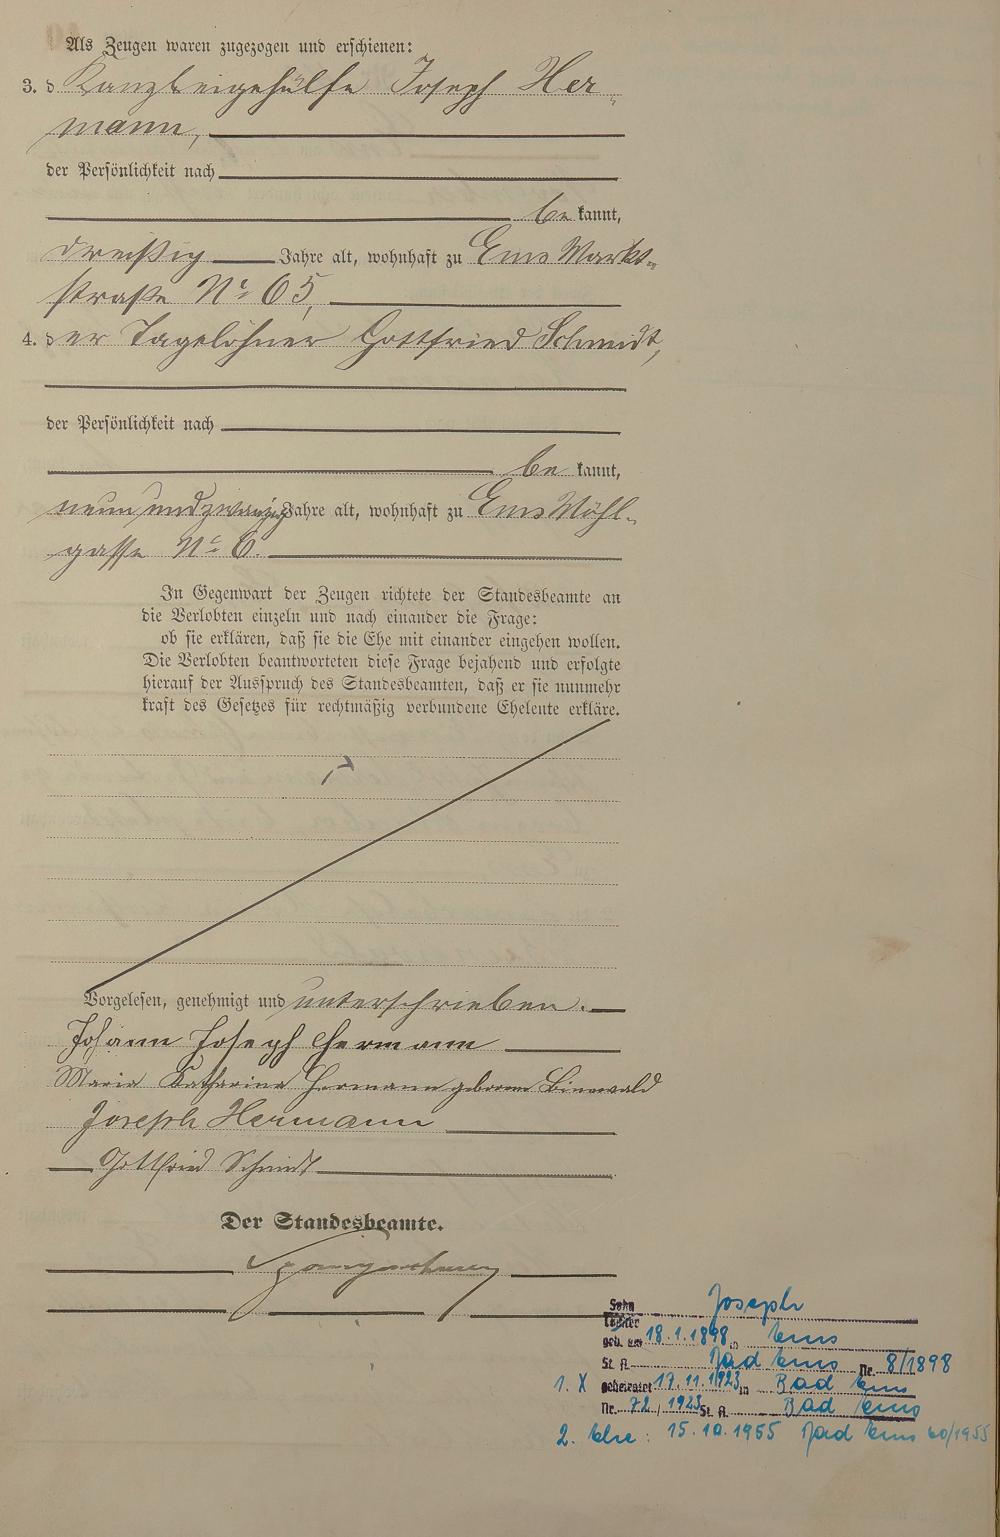 Als Zeugen waren zugezogen und erschienen:
3. d Kanzleigehülfe Joseph Her-
mann,
der Persönlichkeit nach
be kannt,
dreißig Jahre alt, wohnhaft zu Ems Markt-
straße No 65,
4. der Tagelöhner Gottfried Schmidt,
der Persönlichkeit nach
be kannt,
neunundzwanzig Jahre alt, wohnhaft zu Ems
gasse No 6.
In Gegenwart der Zeugen richtete der Standesbeamte an
die Verlobten einzeln und nach einander die Frage:
ob sie erklären, daß sie die Ehe mit einander eingehen wollen.
Die Verlobten beantworteten diese Frage bejahend und erfolgte
hierauf der Ausspruch des Standesbeamten, daß er sie nunmehr
kraft des Gesetzes für rechtmäßig verbundene Eheleute erkläre.
Vorgelesen, genehmigt und unterschrieben.
Johann Joseph Hermann
Maria Katharina Hermann geborene
Joseph Hermann
Gottfried Schmidt
Der Standesbeamte.
Sohn Joseph
Tochter
geb. am 18.1.1898 in Ems
St. A. Bad Ems Nr. 8/1898
1. X geheiratet 17.11.1923 in Bad Ems
Nr. 72 / 1923 St. A. Bad Ems
2. Ehe: 15.10.1955 Bad Ems 60/1955